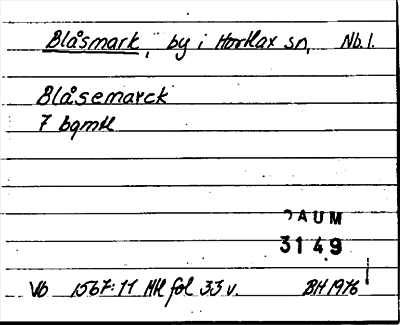 Blåsmark, by i Hortlax sn, Nb.l.
Blåsemarck
7 bqmtl
DAUM
3149
Vb 1567:11 Mtl fol 33 v. BH 1976